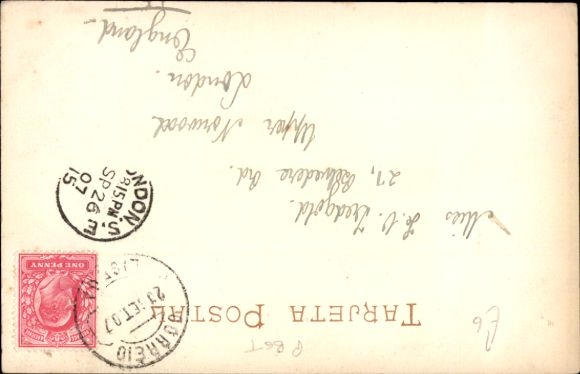 TARJETA POSTAL
Miss L. V. Tredgold.
27, Belvedere Rd.
Upper Norwood
London.
England.
LONDON. S.E
8.15 PM
SP 26
07
15
CORREIO
23 SET. 07
ONE PENNY